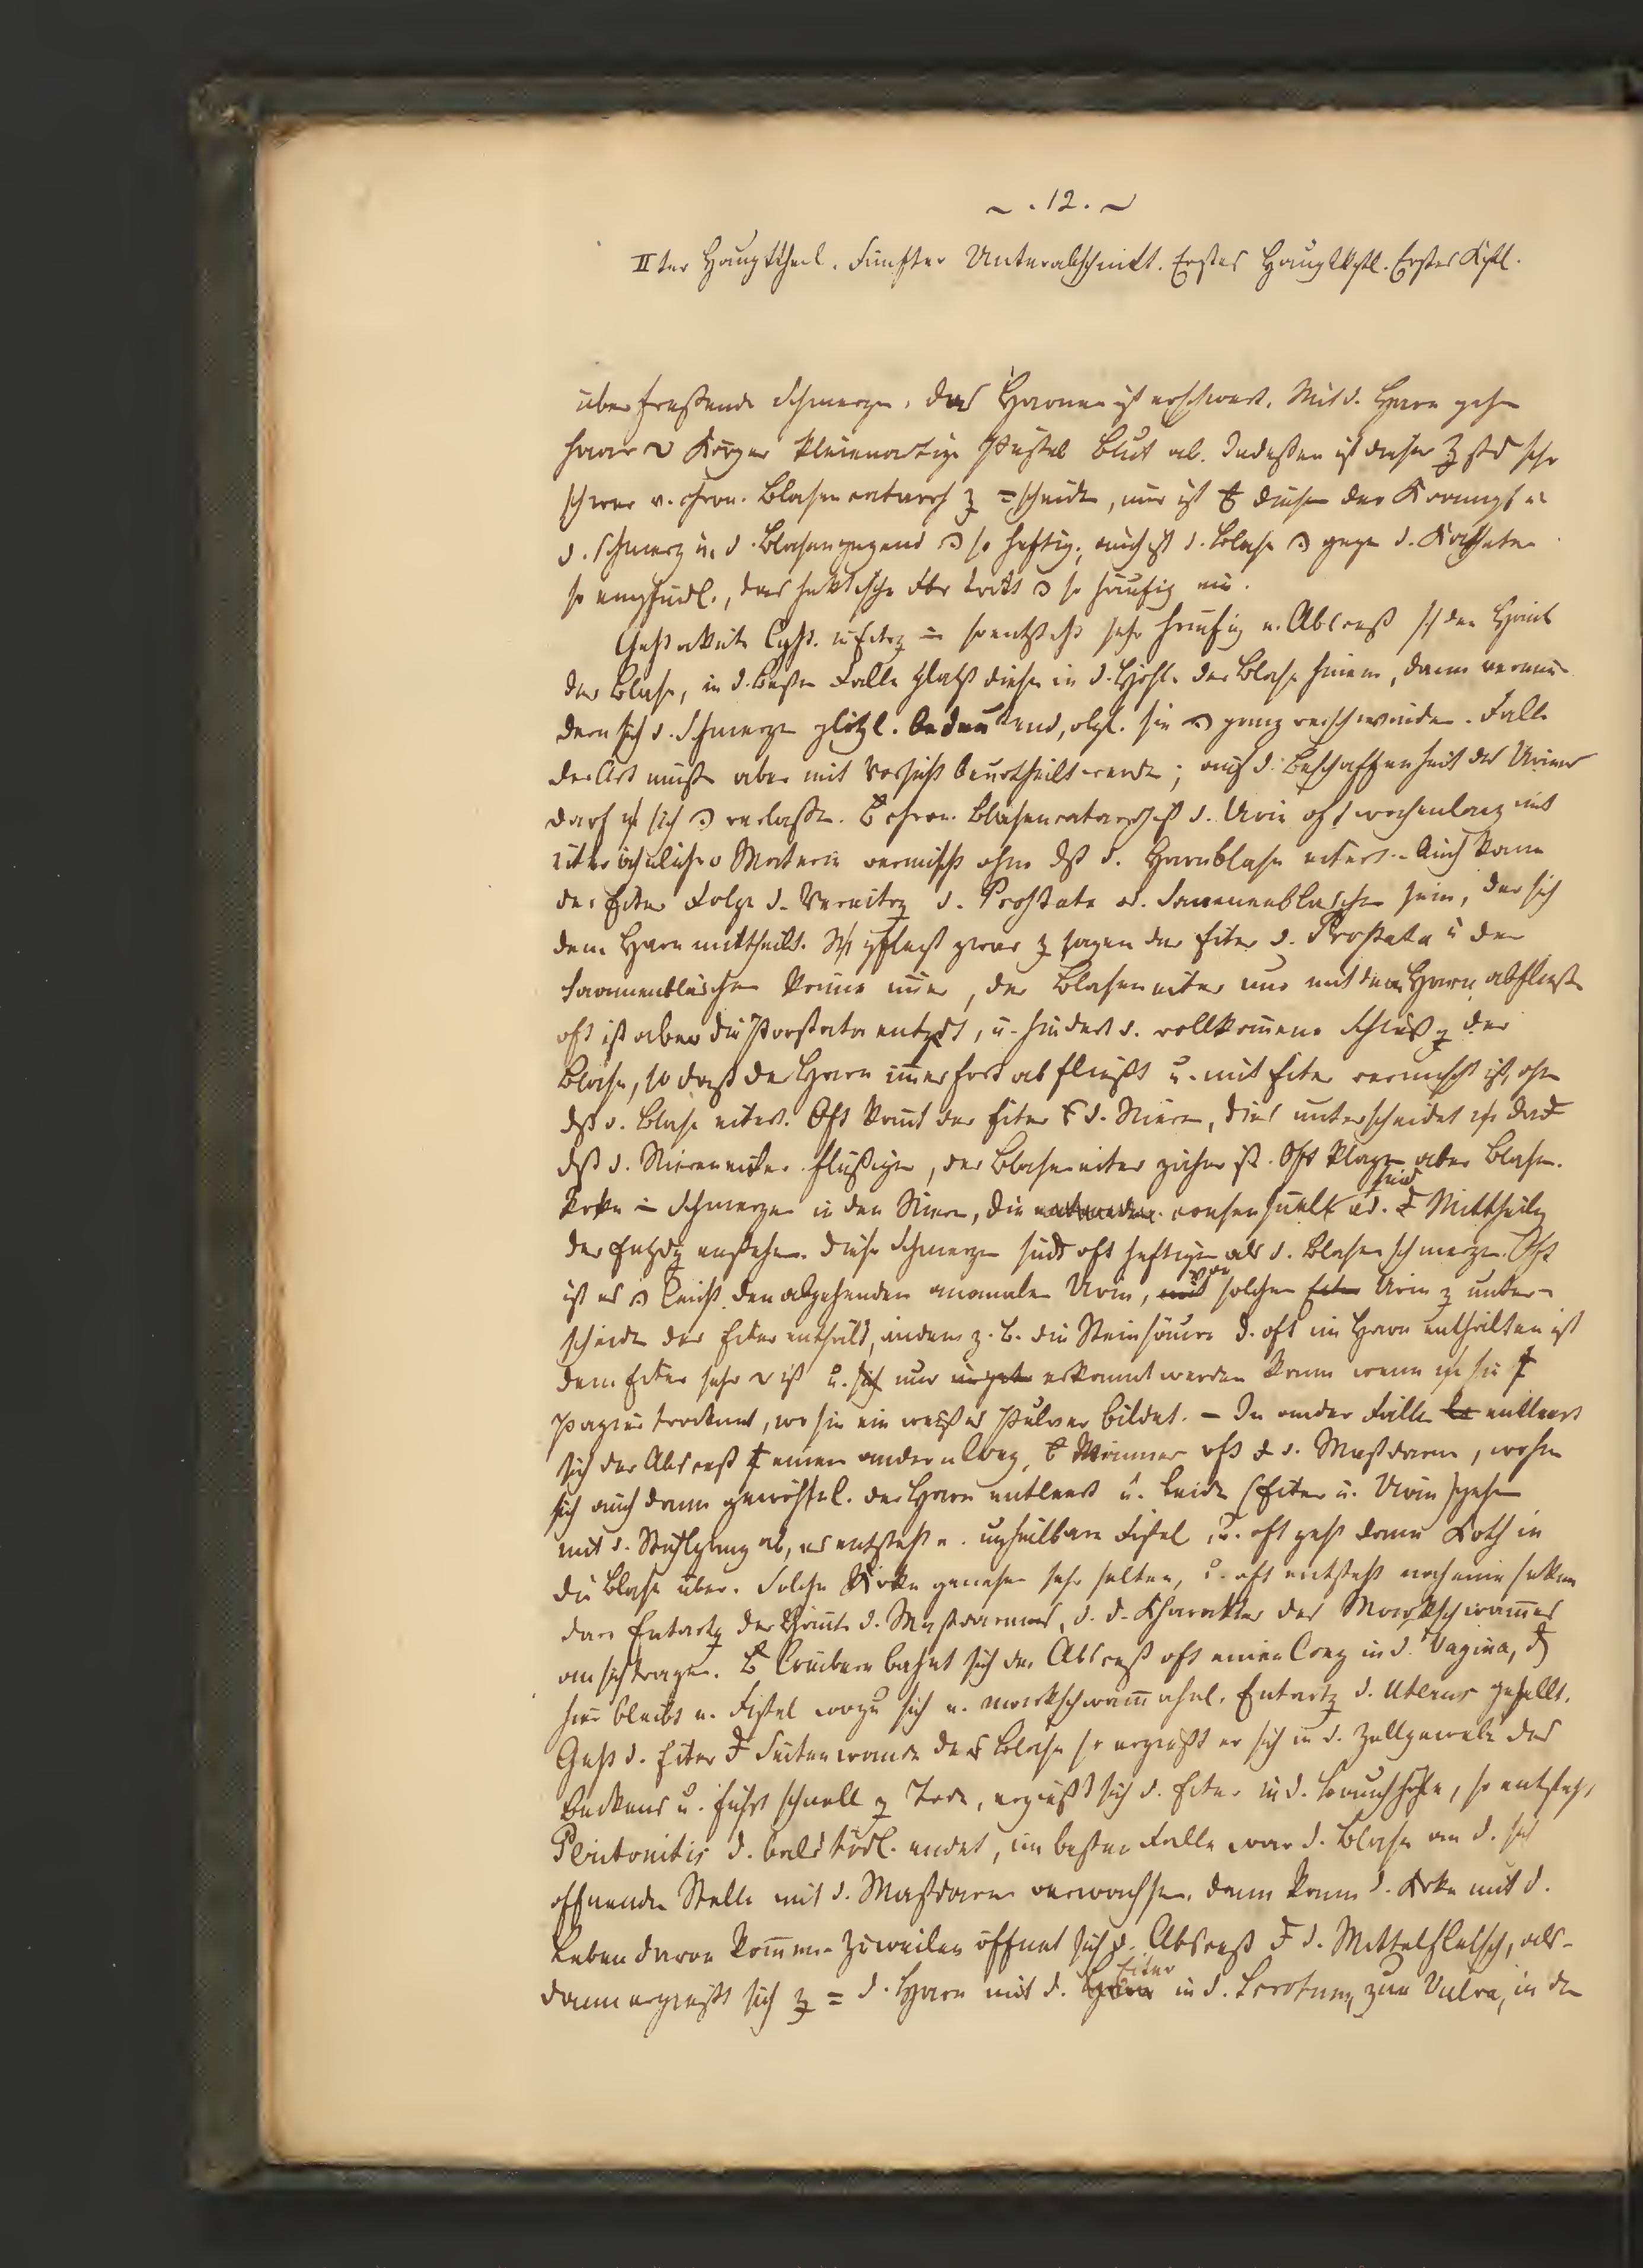 ~ . 12. ~
IIter Haupttheil. Fünfter Unterabschnitt. Erstes Hauptkptl. Erstes Kptl.
über fressende Schmerzen, das Harnen ist erschwert. Mit d. Harn gehen
kleienartige Blut ab. Indessen ist dieser sehr
schwer v. chron. Blasencatarrh z = scheiden, nur ist diesem der Krampf u.
d. Schmerz in d. Blasengegend so heftig, auch ist d. Blase gegen d. Katheter
so empfindl., das hektische Fbr tritt so häufig ein.
Geht akute Cyst. in Eitrg so entsteht sehr häufig e. Abscess der Häute
der Blase, in d. besten Falle platzt dieser in d. Höhle der Blase hinein, dann vermin-
dern sich d. Schmerzen plötzl. bedeutend, obgl. sie ganz verschwinden. Fälle
der Art müssen aber mit Vorsicht beurtheilt werden; auf d. Beschaffenheit des Urines
darf sich verlassen. chron. Blasencatarrh ist d. Urin oft wochenlang mit
eiterähnlicher Materie vermischt ohne dß d. Harnblase eitert. Auch kann
der Eiter Folge d. Vereitrg d. Prostata od. Saamenbläschen sein, der sich
dem Harn mittheilt. pflegt zwar z sagen der Eiter d. Prostata u der
Saamenbläschen könne , der Blaseneiter nur mit dem Harn abfließen
oft ist aber die Prostata entzdt, u. hindert d. vollkommene Schließg der
Blase, so daß der Harn immerfort abfließt u. mit Eiter vermischt ist, ohne
dß d. Blase eitert. Oft kommt der Eiter d. Nieren, dies unterscheidet
dß d. Niereneiter flüßiger, der Blaseneiter zäher ist. Oft klagen aber Blasen-
krke Schmerzen in den Nieren, die entweder consensuell sind od. Mittheilg
der Entzdg entstehen. Diese Schmerzen sind oft heftiger als d. Blasenschmerzen. Oft
ist es leicht den abgehenden anomalen Urin, mit von solchem Eiter Urin z unter-
scheiden der Eiter enthält, indem z. B. die Steinsäure d. oft im Harn enthalten ist
dem Eiter sehr ist u. sich nur erkannt werden kann wenn sie
Papier trocknet, wo sie ein weißes Pulver bildet. – In ander Fällen entleert
sich der Abscess einen andern Weg, Männer oft d. Mastdarm, wohin
sich auch dann gewöhnl. der Harn entleert u. beide (Eiter u. Urin) gehen
mit d. Stuhlgang ab, es entsteht e. unheilbare Fistel, u. oft geht dann Koth in
die Blase über. Solche Krke genesen sehr selten, u. oft entsteht noch eine sekun
däre Entartg der Häute d. Mastdarmes, d. d. Charakter des Markschwammes
an sich tragen. Weibern bahnt sich der Abscess oft einen Weg in d. Vagina,
hier bleibt e. Fistel wozu sich e. markschwammähnl. Entartg d. Uterus gesellt.
Geht d. Eiter Seitenwände der Blase so ergießt er sich in d. Zellgewebe des
Beckens u. führt schnell z Tode, ergießt sich d. Eiter in d. Bauchhöhle, so entsteht
Peritonitis d. bald tödl. endet, im besten Falle war d. Blase an d. sich
öffnenden Stelle mit d. Mastdarm verwachsen, dann kann d. Krke mit d.
Leben davon kommen. Zuweilen öffnet sich d. Abscess d. Mittelfleisch, als-
dann ergießt sich z = d. Harn mit d. Eiter in d. Scrotum, zur Vulva, in den